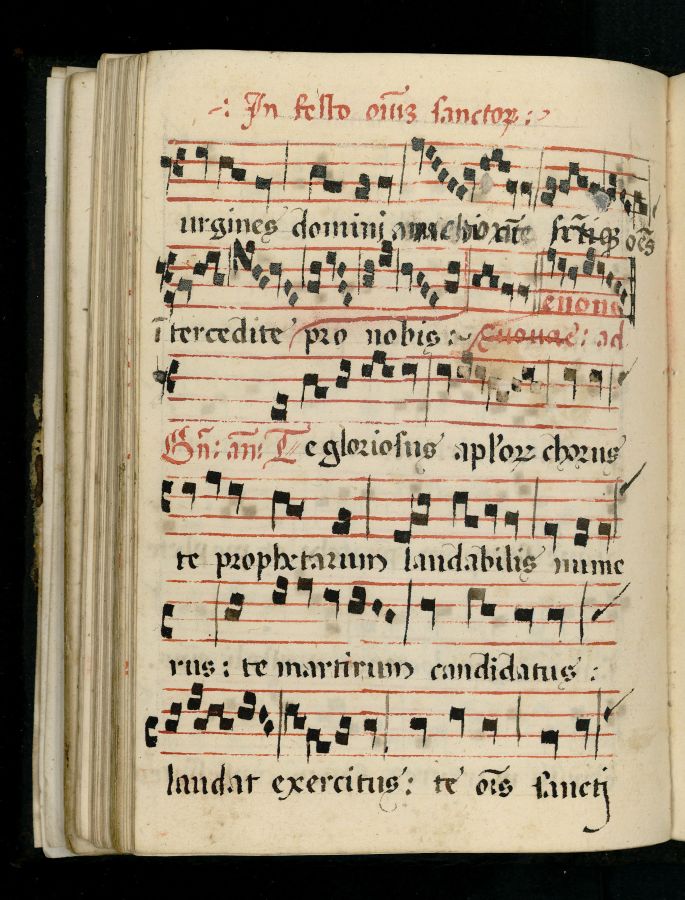 In festo oīuꝫ sanctoꝝ
urgines domini oēs
ītercedite pro nobis: euouae: ad
euouae
Te gloriosus aplʼoꝝ chorus
te prophetarum laudabilis nume
rus: te martirum candidatus:
laudat exercitus: te oīs sancti